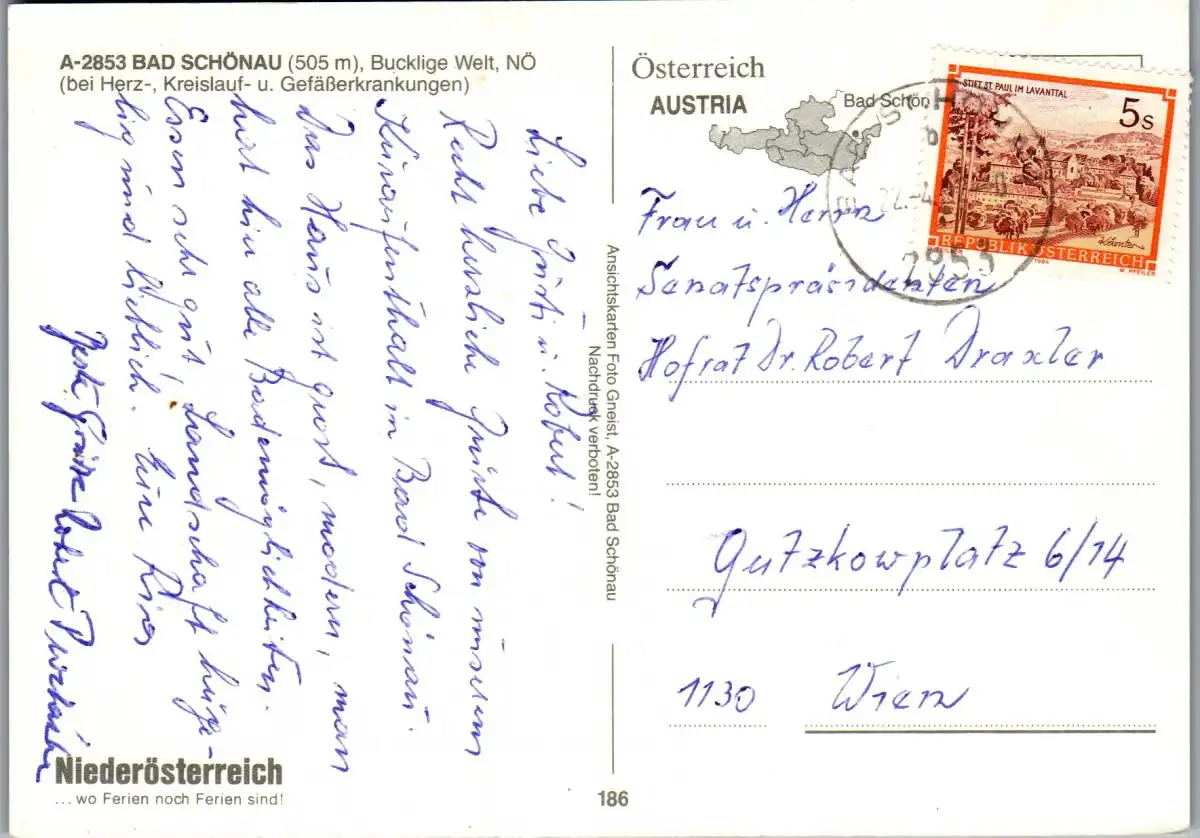 A-2853 BAD SCHÖNAU (505 m), Bucklige Welt, NÖ
(bei Herz-, Kreislauf- u. Gefäßerkrankungen)
Liebe Gusti u. Robert!
Recht herzliche Grüße von unserem
Kuraufenthalt in Bad Schönau.
Das Haus ist groß, modern, man
hat hier alle Bademöglichkeiten.
Essen sehr gut! Landschaft hüge-
lig und lieblich. Eure
Beste Grüße Robert
Niederösterreich
... wo Ferien noch Ferien sind!
Ansichtskarten Foto Gneist, A-2853 Bad Schönau
Nachdruck verboten!
186
Österreich
AUSTRIA
Bad Schön
STIFT ST. PAUL IM LAVANTTAL
5 S
REPUBLIK ÖSTERREICH
W. PFEILER
22.-4.
2853
Frau u. Herrn
Senatspräsidenten
Hofrat Dr. Robert Draxler
Gutzkowplatz 6/14
1130 Wien